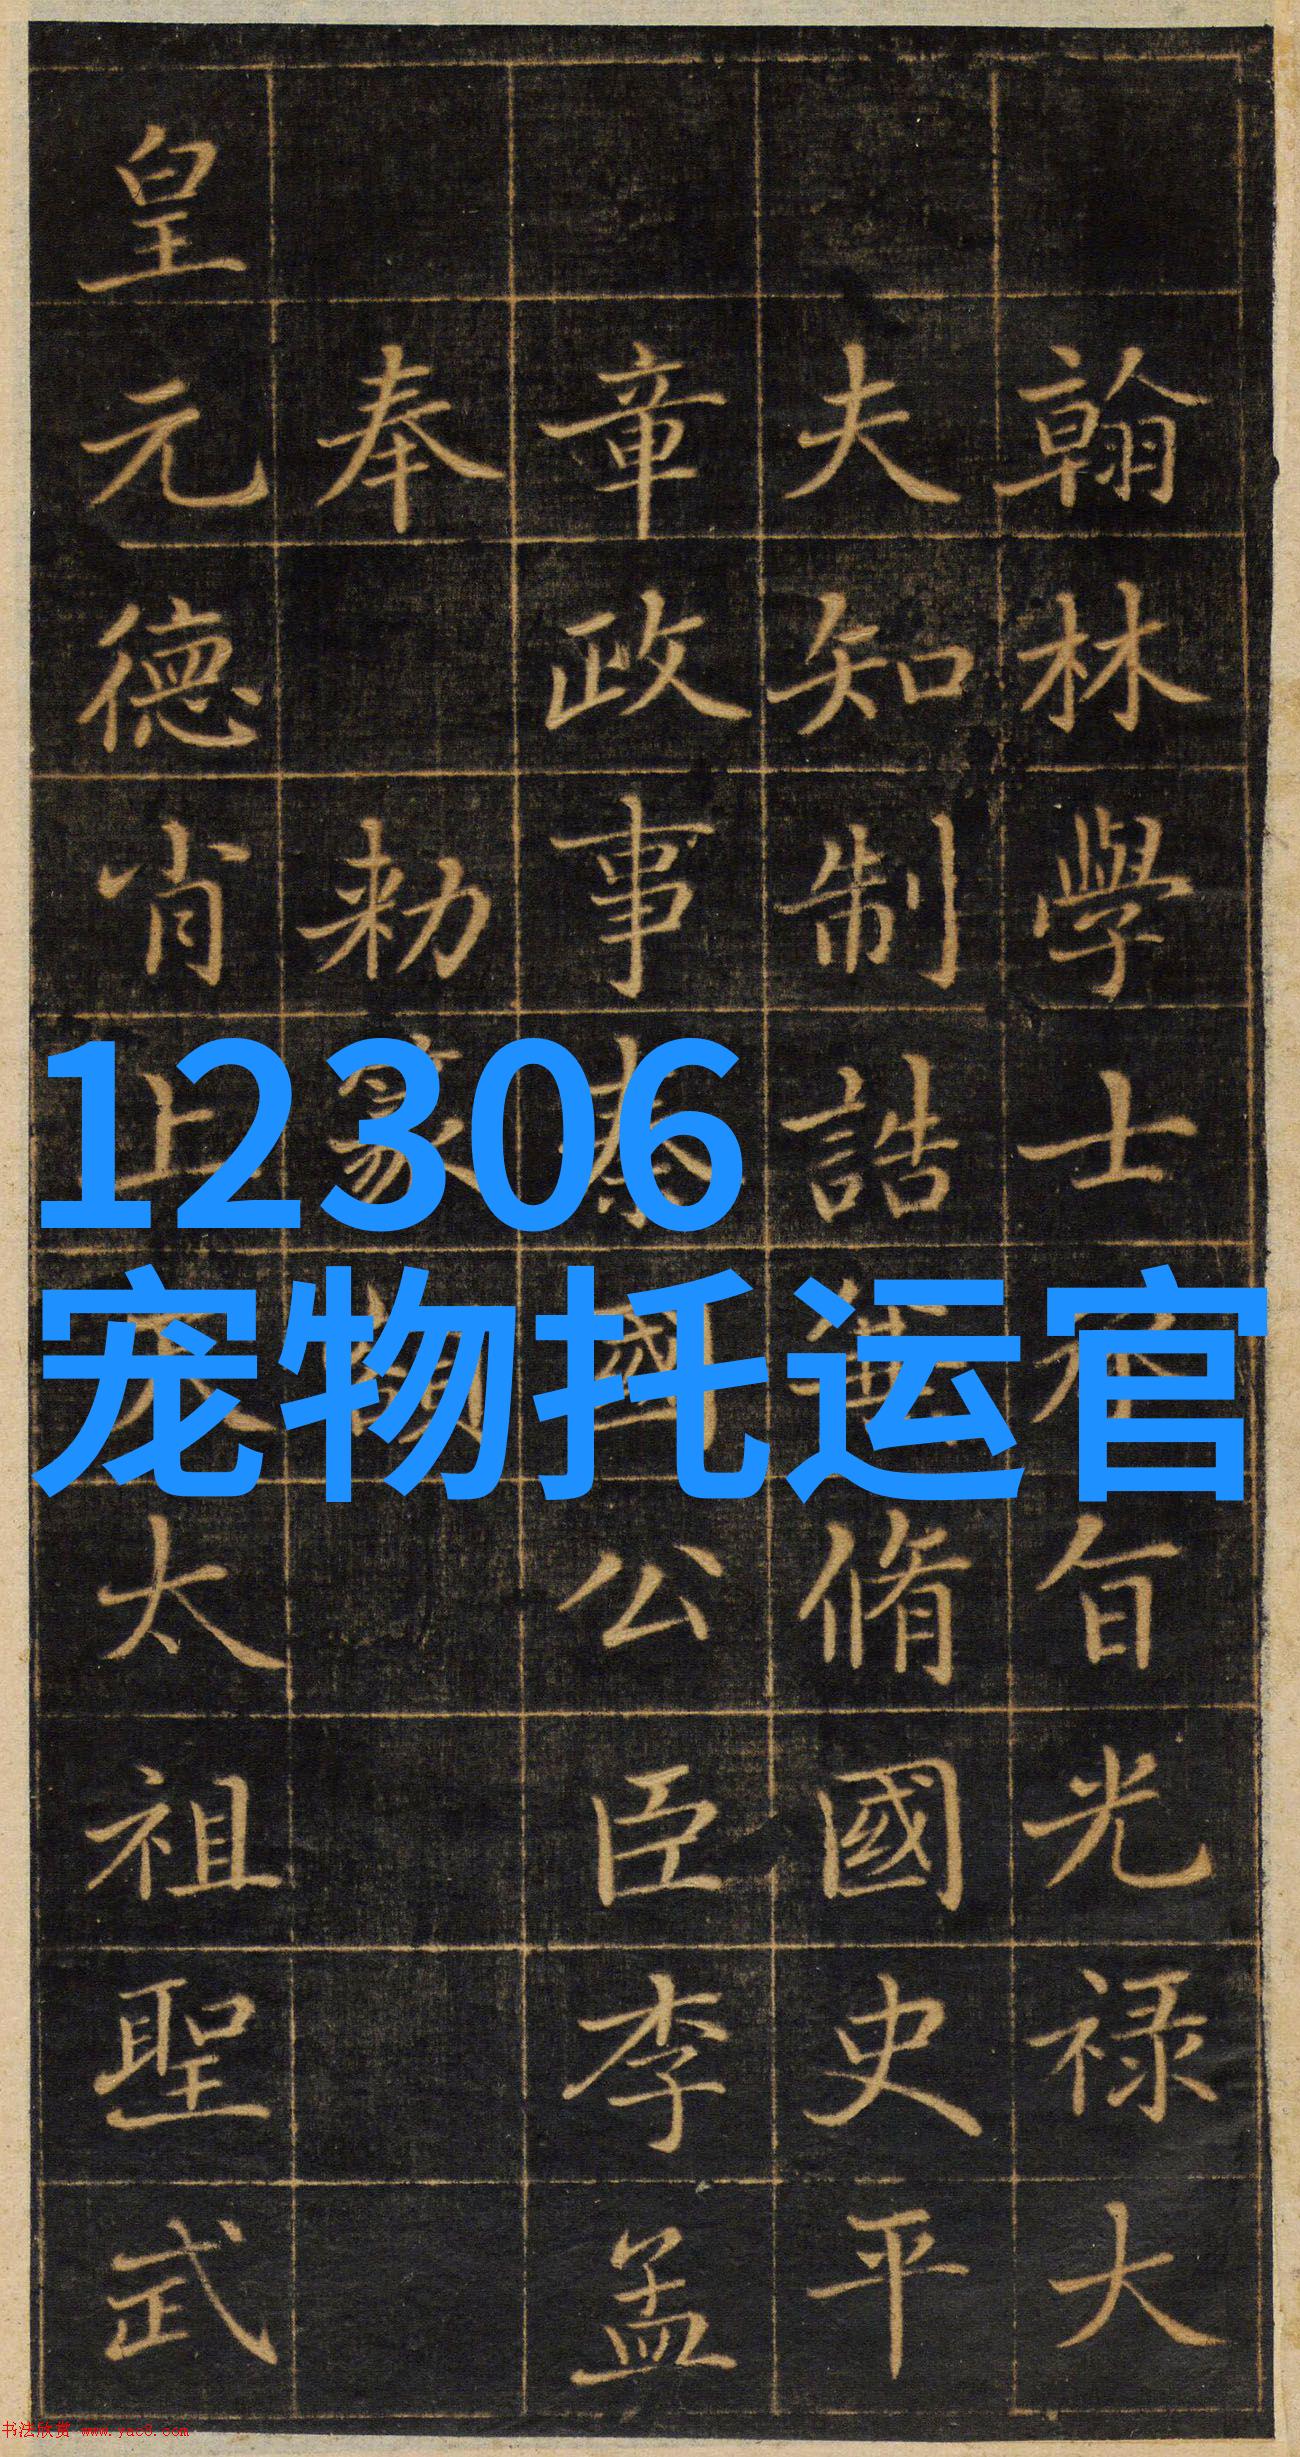 翰林學士承旨光禄大
夫知制誥兼脩國史平
章政事秦國公臣李孟
奉 勑篆額
皇元德肖上天太祖聖武
12306
宠物托运官
书法欣赏 www.yac8.com